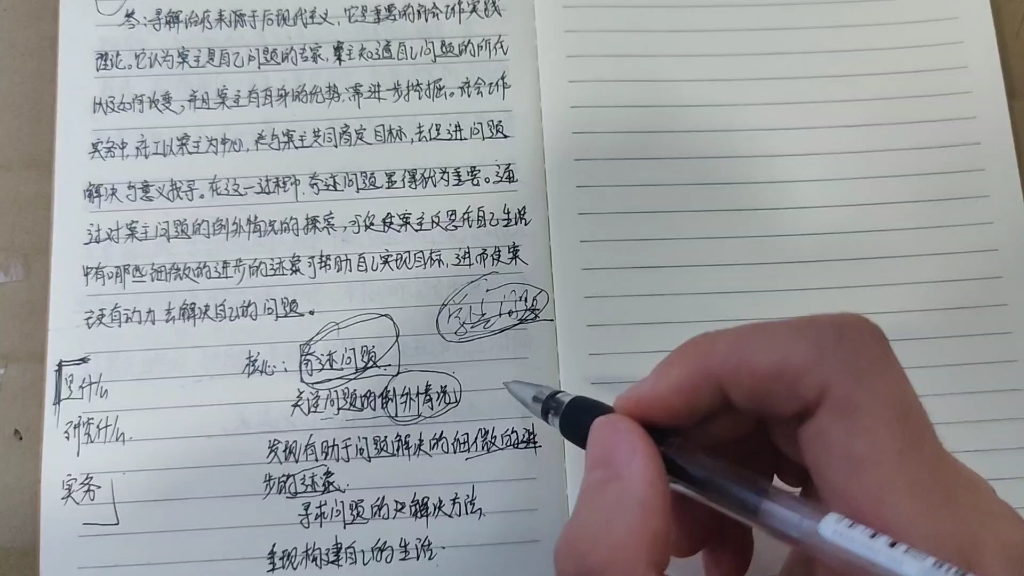 答:寻解治疗来源于后现代主义,它是重要的社会工作实践
理论。它认为案主是自己问题的专家,案主知道自己问题的所在
以及如何改变。并且案主有自身的优势,需进一步挖掘。社会工作
实务中,社工以案主为中心,并与案主共同商定目标,去促进问题
解决与意义找寻。在这一过程中,奇迹问题显得极为重要。通
过对案主问题的例外情况的探索,可促使案主反思在自己生活
中有哪些细微的进步的迹象可帮助自己实现目标,进而使案
主更有动力去解决自己的问题。
核心:奇迹问题
关注问题的例外情况
是什么
研究什么
发现有助于问题解决的细微的进
步的迹象
实务
寻求问题的解决方法
重现构建自己的生活